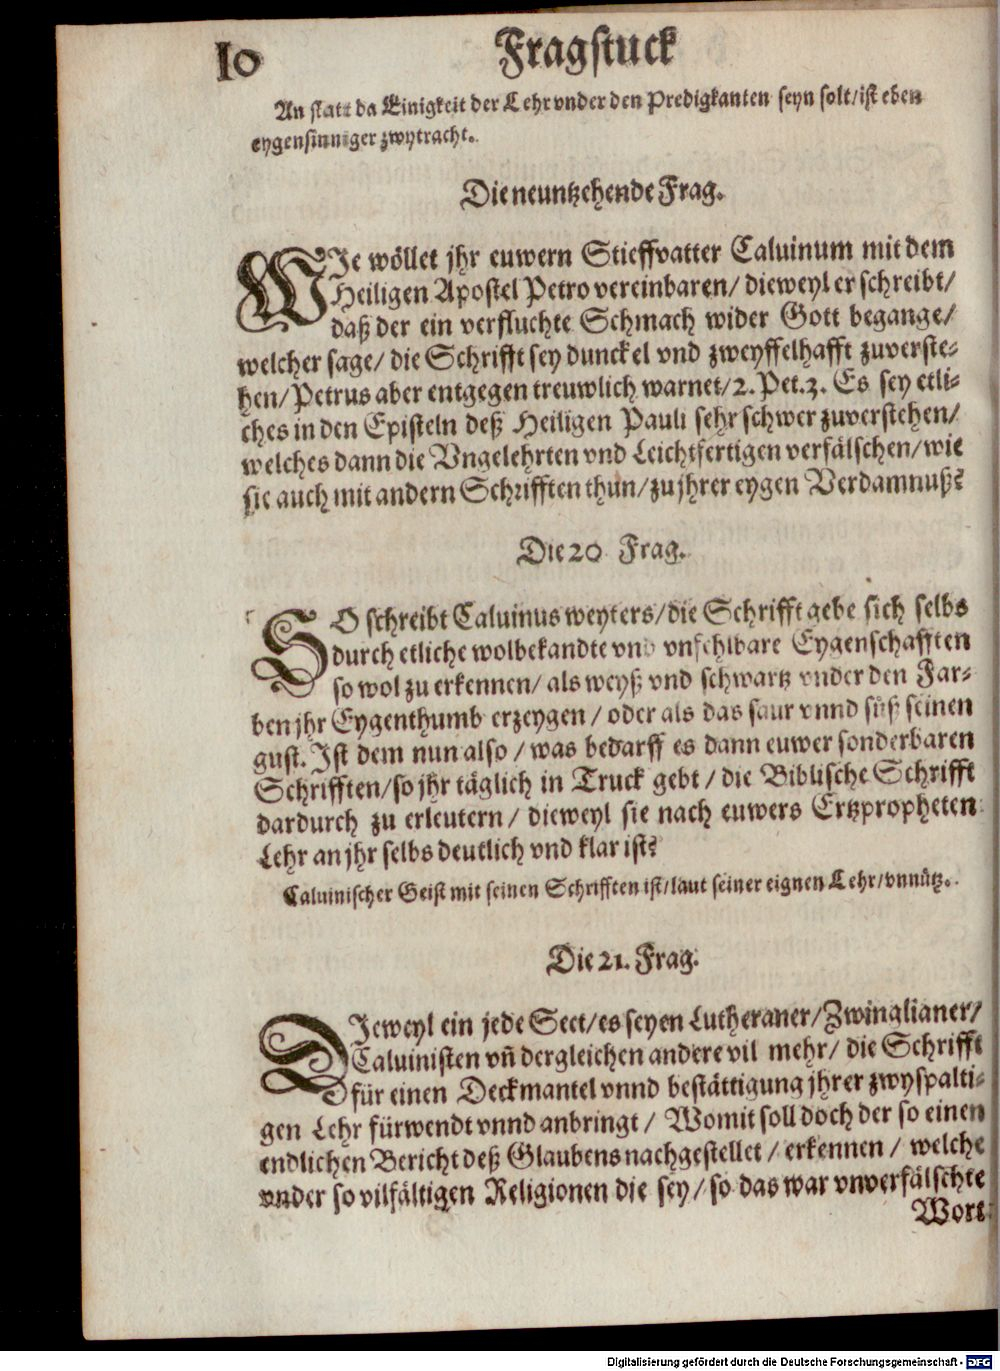 10 Fragstuck
An statt da Einigkeit der Lehr vnder den Predigkanten seyn solt/ist eben
eygensinniger zwytracht.
Die neuntzehende Frag.
WJe wöllet jhr euwern Stieffvatter Caluinum mit dem
Heiligen Apostel Petro vereinbaren/ dieweyl er schreibt/
daß der ein verfluchte Schmach wider Gott begange/
welcher sage/ die Schrifft sey dunckel vnd zweyffelhafft zuverste-
hen/ Petrus aber entgegen treuwlich warnet/ 2. Pet.3. Es sey etli-
ches in den Episteln deß Heiligen Pauli sehr schwer zuverstehen/
welches dann die Vngelehrten vnd Leichtfertigen verfälschen/ wie
sie auch mit andern Schrifften thun/ zu jhrer eygen Verdamnuß?
Die 20 Frag.
SO schreibt Caluinus weyters/ die Schrifft gebe sich selbs
durch etliche wolbekandte vnd vnfehlbare Eygenschafften
so wol zu erkennen/ als weyß vnd schwartz vnder den Far-
ben jhr Eygenthumb erzeygen / oder als das saur vnnd süß seinen
gust. Jst dem nun also / was bedarff es dann euwer sonderbaren
Schrifften/ so jhr täglich in Truck gebt / die Biblische Schrifft
dardurch zu erleutern / dieweyl sie nach euwers Ertzpropheten
Lehr an jhr selbs deutlich vnd klar ist?
Caluinischer Geist mit seinen Schrifften ist/ laut seiner eignen Lehr/ vnnütz.
Die 21. Frag.
DJeweyl ein jede Sect/ es seyen Lutheraner/ Zwinglianer/
Caluinisten vñ dergleichen andere vil mehr/ die Schrifft
für einen Deckmantel vnnd bestättigung jhrer zwyspalti-
gen Lehr fürwendt vnnd anbringt / Womit soll doch der so einen
endlichen Bericht deß Glaubens nachgestellet / erkennen / welche
vnder so vilfältigen Religionen die sey / so das war vnverfälschte
Wort
Digitalisierung gefördert durch die Deutsche Forschungsgemeinschaft - DFG